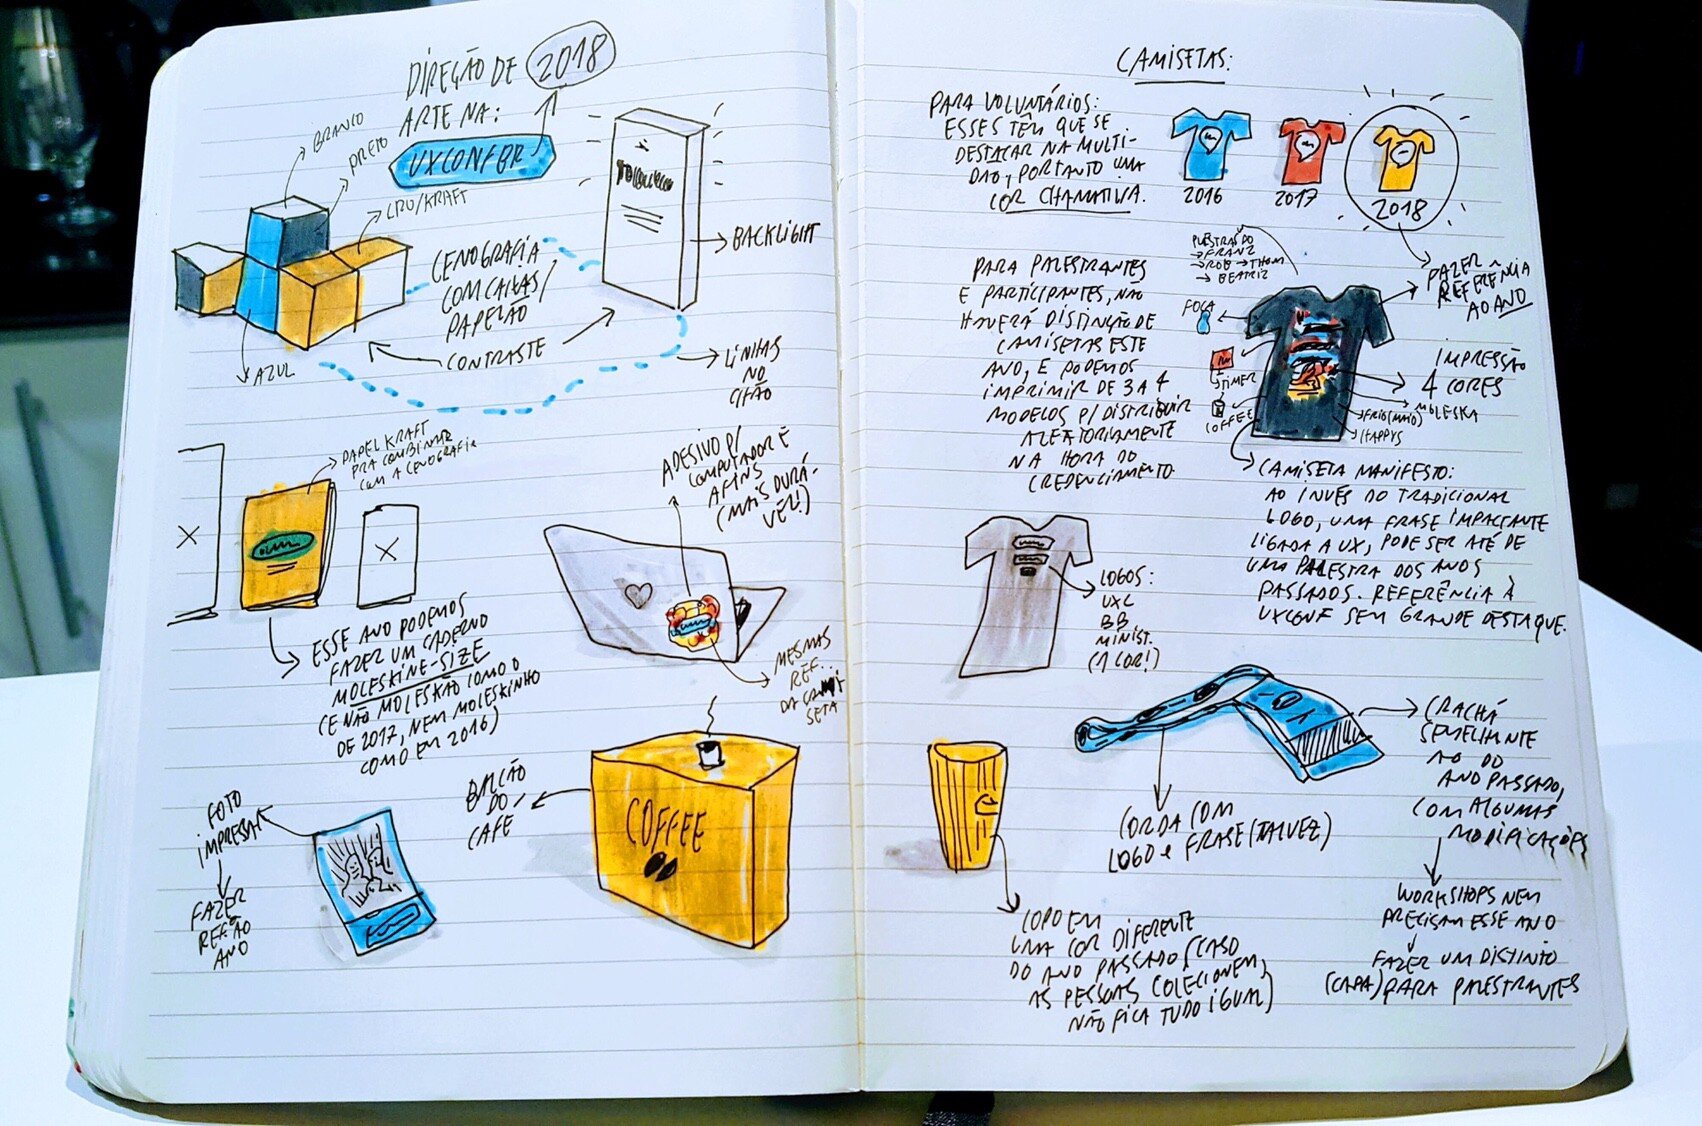 DIREÇÃO DE 2018
ARTE NA:
UXCONFBR
BRANCO
PRETO
CRU/KRAFT
AZUL
CENOGRAFIA
COM CAIXAS/
PAPELÃO
CONTRASTE
BACKLIGHT
LINHAS
NO
CHÃO
PAPEL KRAFT
PRA COMBINAR
COM A CENOGRAFIA
ESSE ANO PODEMOS
FAZER UM CADERNO
MOLESKINE-SIZE
(E NÃO MOLESKÃO COMO O
DE 2017, NEM MOLESKINHO
COMO EM 2016)
ADESIVO P/
COMPUTADOR E
AFINS
(MAIS DURÁ-
VEL!)
MESMAS
REF...
DA CAMI
SETA
FOTO
IMPRESSA
FAZER
REF. AO
ANO
BALCÃO
DO
CAFÉ
COFFEE
CAMISETAS:
PARA VOLUNTÁRIOS:
ESSES TÊM QUE SE
DESTACAR NA MULTI-
DÃO, PORTANTO UMA
COR CHAMATIVA.
2016
2017
2018
FAZER
REFERÊNCIA
AO ANO
PARA PALESTRANTES
E PARTICIPANTES, NÃO
HAVERÁ DISTINÇÃO DE
CAMISETAS ESTE
ANO, E PODEMOS
IMPRIMIR DE 3 A 4
MODELOS P/ DISTRIBUIR
ALEATORIAMENTE
NA HORA DO
CREDENCIAMENTO
PALESTRAS DO
→ FRANZ
→ ROB → THOM
→ BEATRIZ
FOCA
TIMER
COFFEE
IMPRESSÃO
4 CORES
MOLESKA
FRIO (MAIO)
HAPPYS
CAMISETA MANIFESTO:
AO INVÉS DO TRADICIONAL
LOGO, UMA FRASE IMPACTANTE
LIGADA A UX, PODE SER ATÉ DE
UMA PALESTRA DOS ANOS
PASSADOS. REFERÊNCIA À
UXCONF SEM GRANDE DESTAQUE.
LOGOS:
UXC
BB
MINIST.
(1 COR!)
CORDA COM
LOGO e FRASE (TALVEZ)
CRACHÁ
SEMELHANTE
AO DO
ANO PASSADO,
COM ALGUMAS
MODIFICAÇÕES
WORKSHOPS NEM
PRECISAM ESSE ANO
FAZER UM DISTINTO
(CAPA) PARA PALESTRANTES
COPO EM
UMA COR DIFERENTE
DO ANO PASSADO (CASO
AS PESSOAS COLECIONEM,
NÃO FICA TUDO IGUAL)